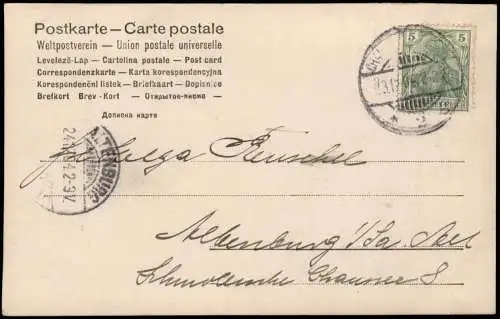 Postkarte — Carte postale
Weltpostverein — Union postale universelle
Levelező-Lap — Cartolina postale — Post card
Correspondenzkarte — Karta korespondencyjna
Korespondenční lístek — Briefkaart — Dopisnice
Brefkort Brev-Kort — Открытое-письмо —
Дописна карте
5 5
ALTENBURG
Helga
Altenburg
Chaussee 8